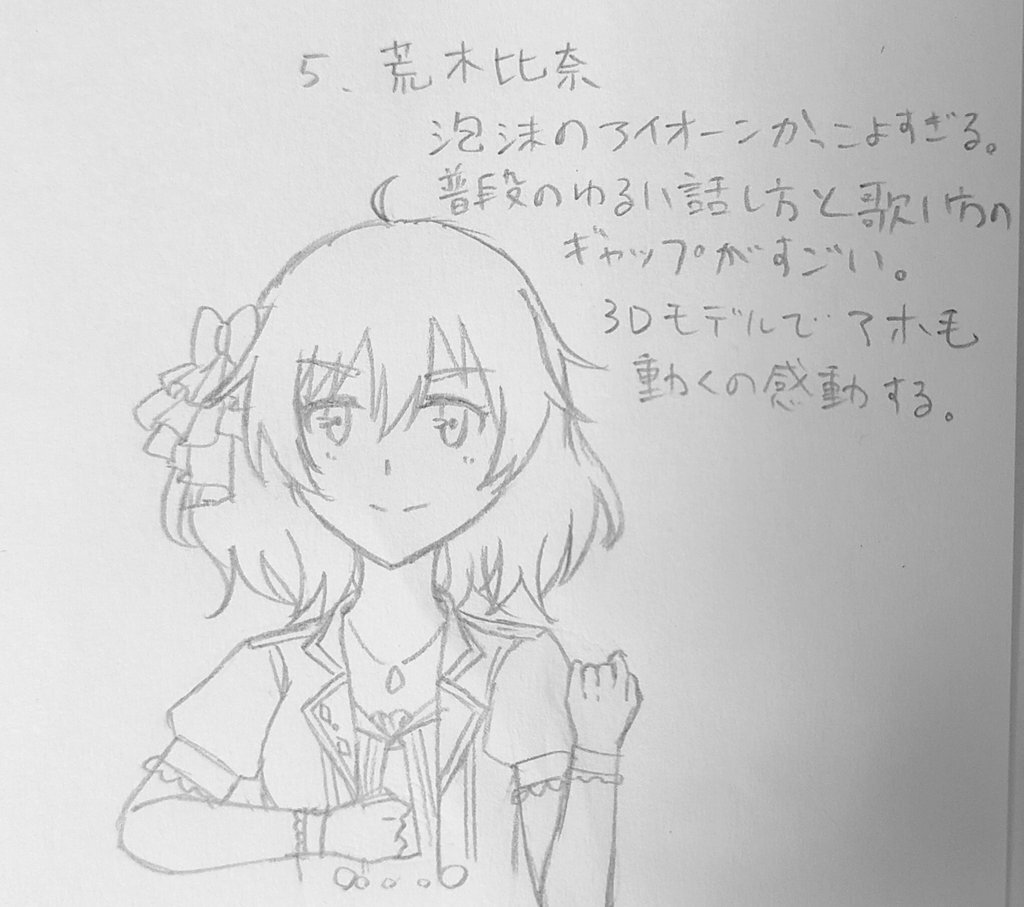 5、荒木比奈
泡沫のアイオーンかっこよすぎる。
普段のゆるい話し方と歌い方の
ギャップがすごい。
3Dモデルでアホ毛
動くの感動する。